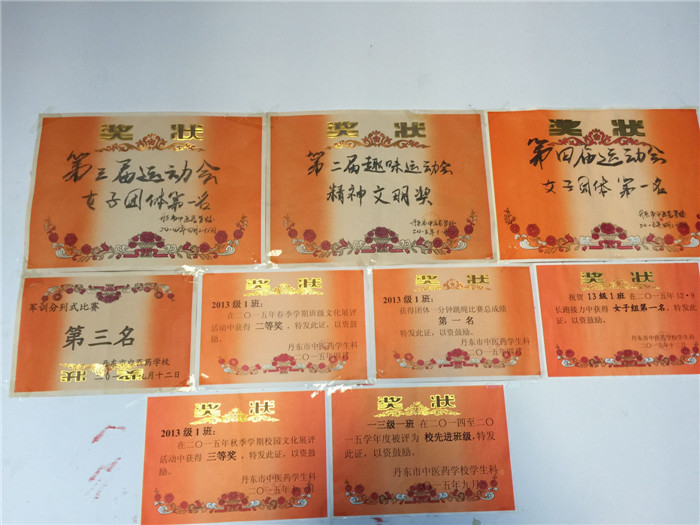 奖状
第三届运动会
女子团体第一名
奖状
第二届趣味运动会
精神文明奖
奖状
第四届运动会
女子团体第一名
军训分列式比赛
第三名
丹东市中医药学校
月十二日
奖状
2013级1班:
在二○一五年春季学期班级文化展评
活动中获得 二等奖,特发此证,以资鼓励。
丹东市中医药学生科
奖状
2013级1班:
获得团体一分钟跳绳比赛总成绩
第一名
特发此证,以资鼓励。
丹东市中医药学生科
奖状
祝贺 13级1班 在二○一五年12·
长跑接力中获得 女子组第一名,特发此
证,以资鼓励。
丹东市中医药学校学生科
奖状
2013级1班:
在二○一五年秋季学期校园文化展评
活动中获得 三等奖,特发此证,以资鼓励。
丹东市中医药学生科
奖状
一三级一班 在二○一四至二○
一五学年度被评为 校先进班级,特发
此证,以资鼓励。
丹东市中医药学校学生科
一五年九月